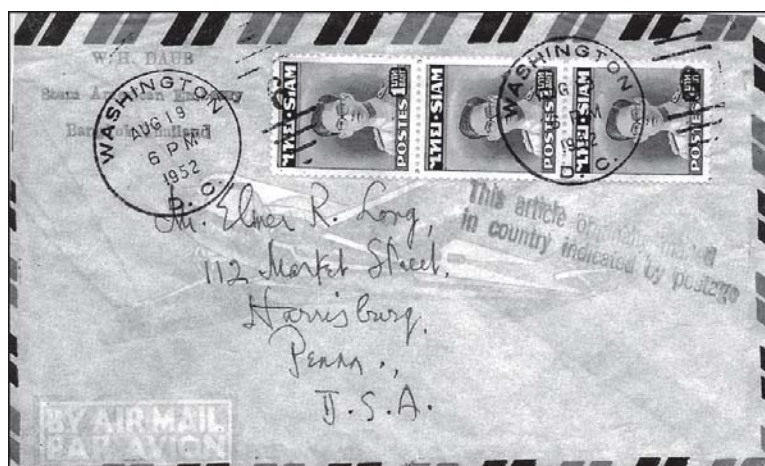 W. H. DAUB
American Embassy
Bangkok, Thailand
WASHINGTON
AUG 19
6 PM
1952
D. C.
ไทย • SIAM
POSTES
ไทย • SIAM
POSTES
ไทย • SIAM
POSTES
WASHINGTON
PM
1952
D. C.
This article originally mailed
in country indicated by postage
Mr. Elmer R. Long,
112 Market Street,
Harrisburg,
Penna.,
U.S.A.
BY AIR MAIL
PAR AVION